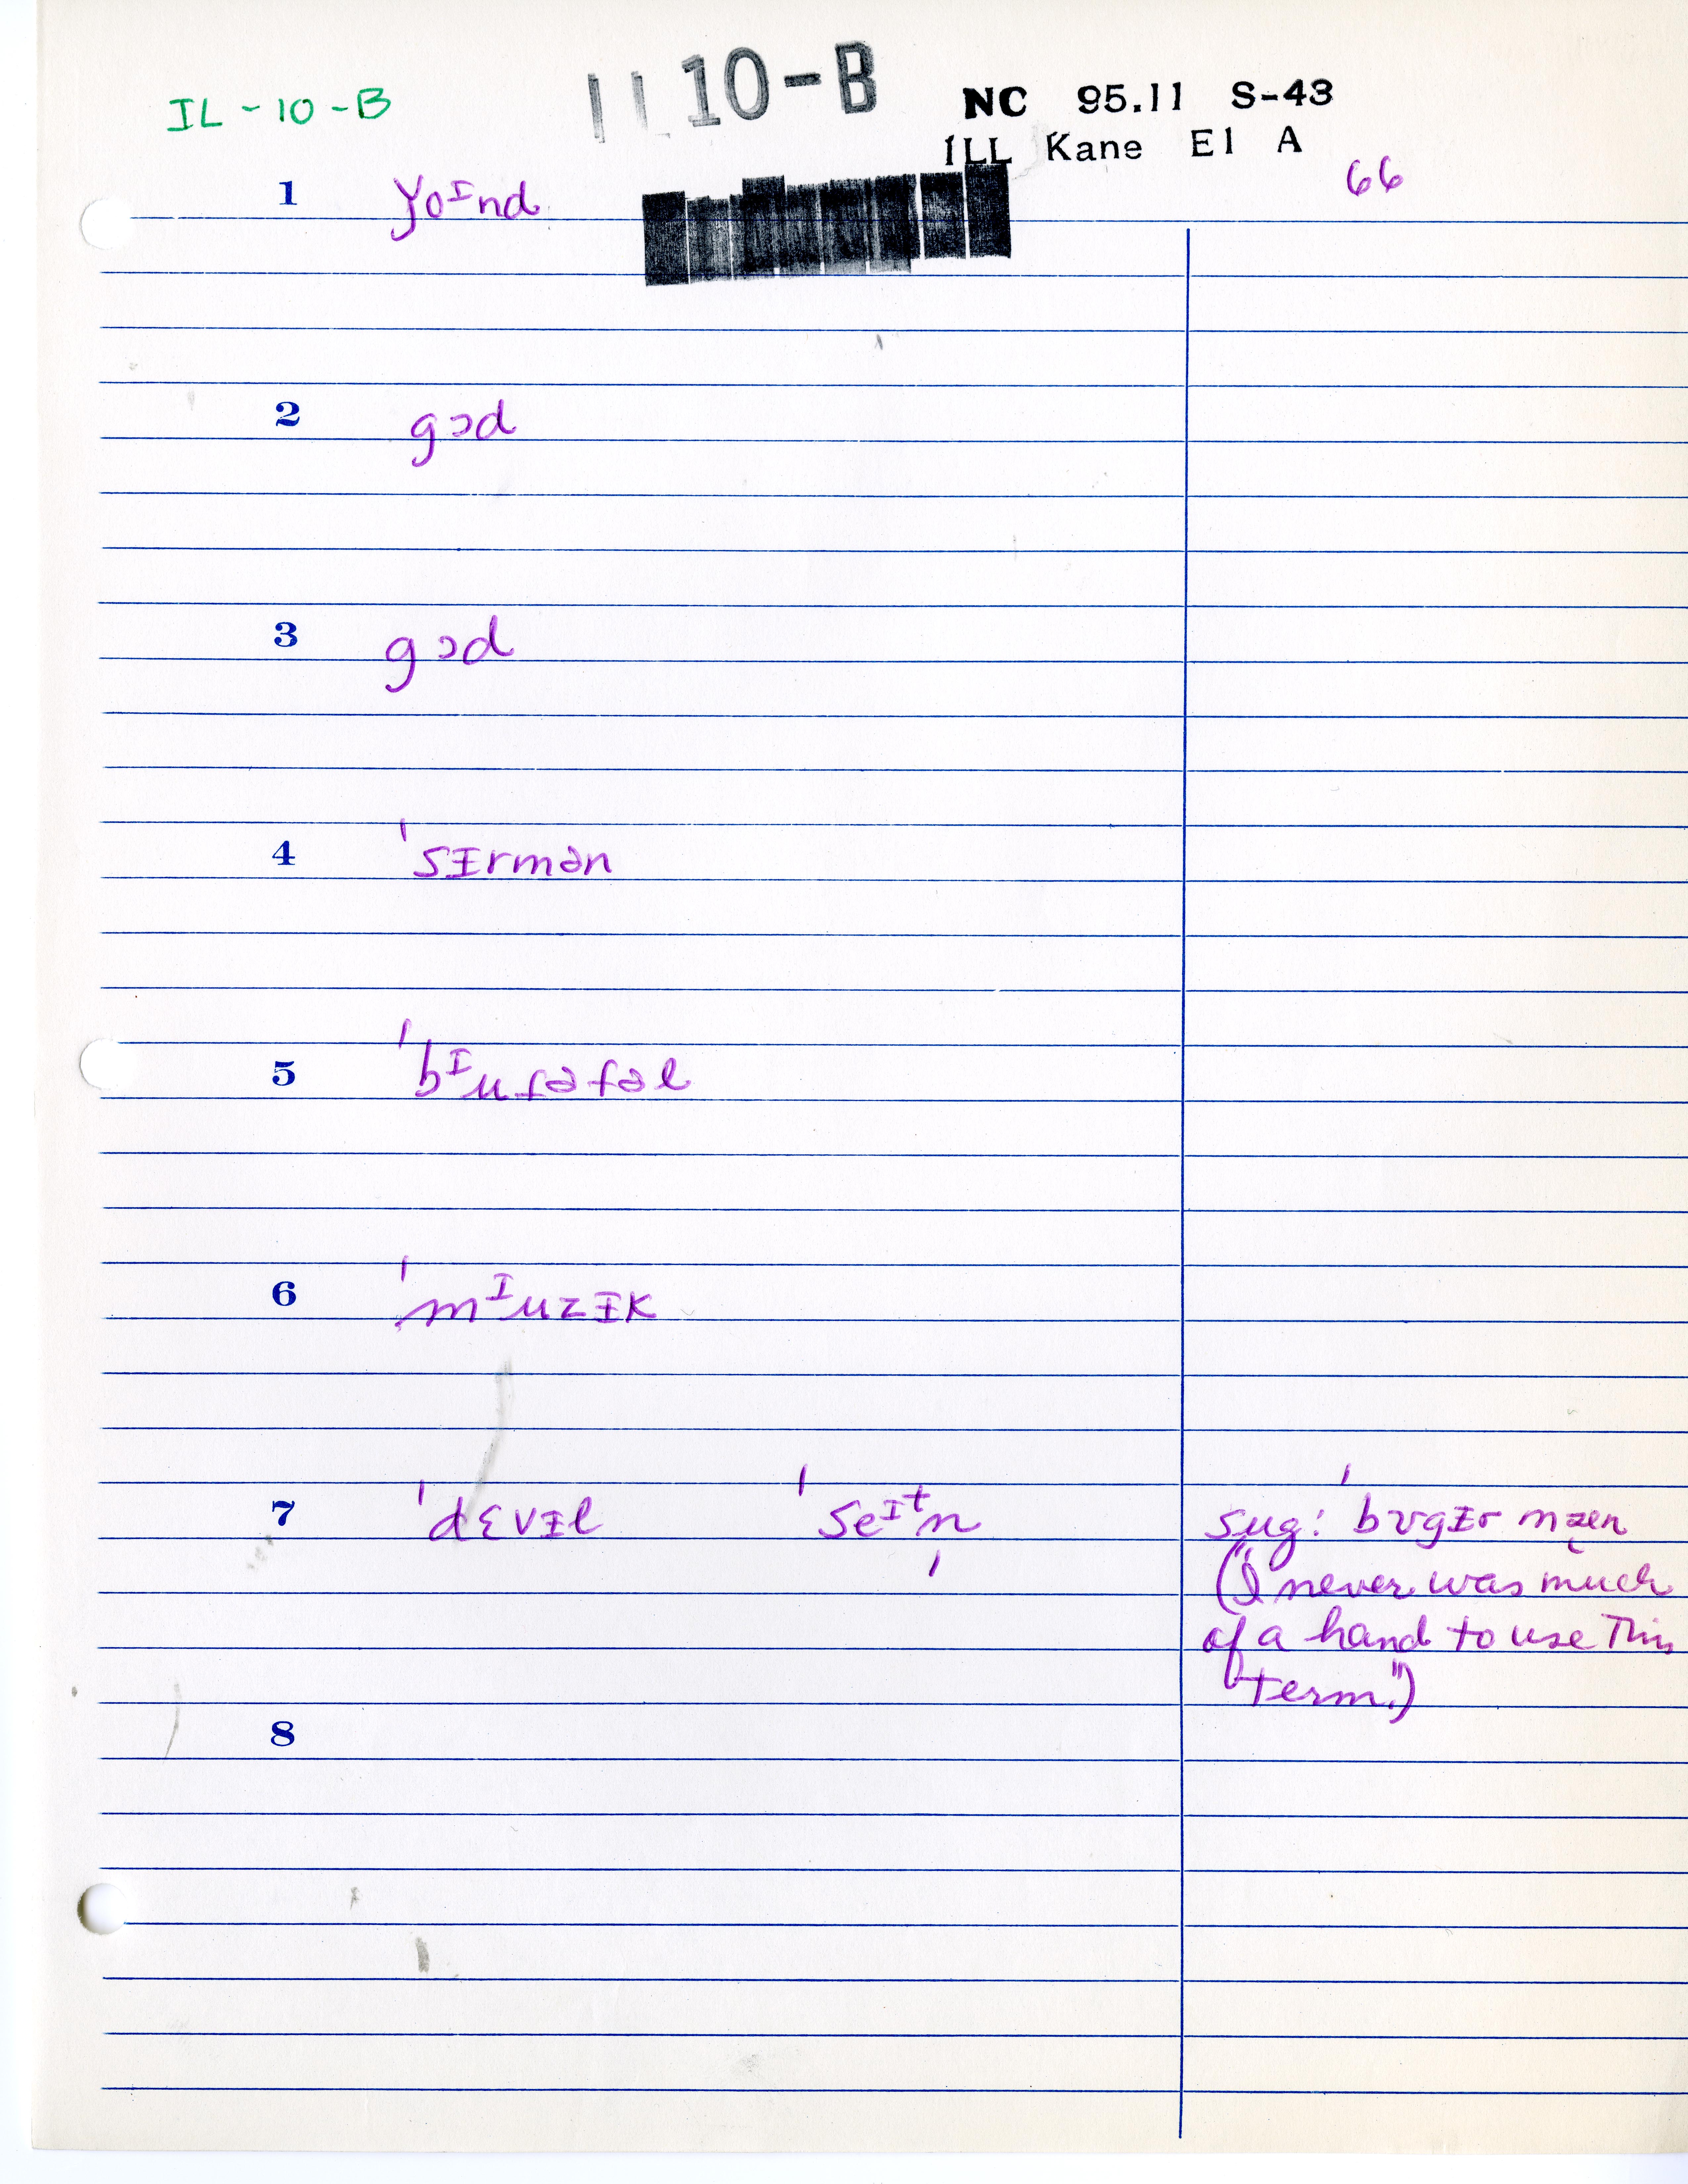 IL-10-B
IL 10-B
NC 95.11 S-43
ILL Kane El A
66
1 ɣoᴵnd
2 gɔd
3 gɔd
4 ˈsɪrmən
5 ˈbᴵuɾəfəl
6 ˈmᴵuzɪk
7 ˈdɛvɪl ˈseᴵᵗn̩ sug: ˈbʊgɪr mæn
("I never was much
of a hand to use this
term.")
8